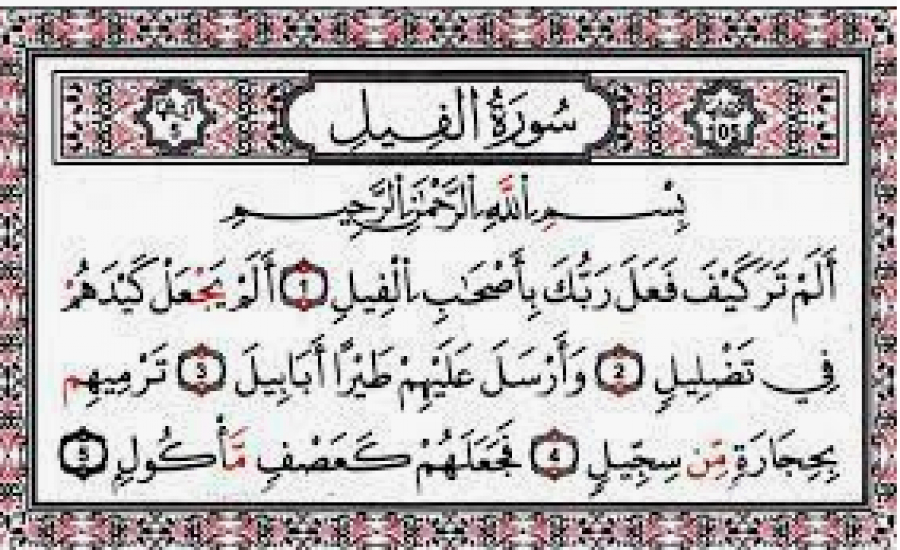 سُورَةُ الفِيلِ
105
5
بِسْمِ اللَّهِ الرَّحْمَٰنِ الرَّحِيمِ
أَلَمْ تَرَ كَيْفَ فَعَلَ رَبُّكَ بِأَصْحَٰبِ الْفِيلِ 1 أَلَمْ يَجْعَلْ كَيْدَهُمْ
فِي تَضْلِيلٍ 2 وَأَرْسَلَ عَلَيْهِمْ طَيْرًا أَبَابِيلَ 3 تَرْمِيهِم
بِحِجَارَةٍ مِّن سِجِّيلٍ 4 فَجَعَلَهُمْ كَعَصْفٍ مَّأْكُولٍ 5